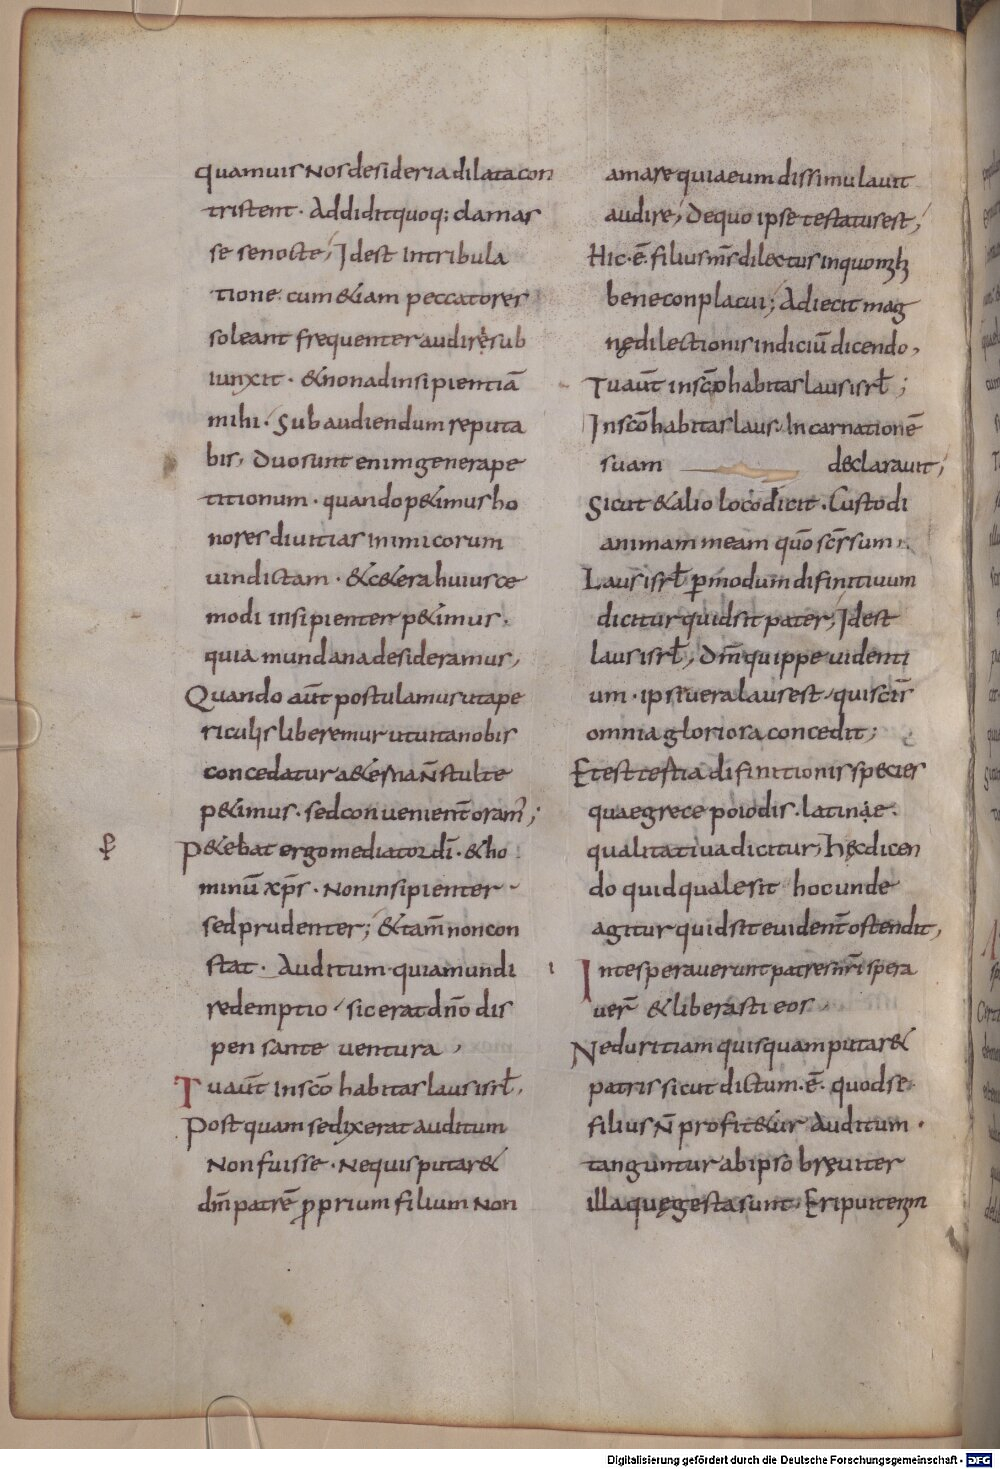 quamuis Nos desideria dilata con
tristent · Addidit quoq; clamas
se se nocte; Idest In tribula
tione. cum &iam peccatores
soleant frequenter audire; sub
iunxit · & non ad insipientiā
mihi · Subaudiendum reputa
bis, Duo sunt enim genera pe
titionum · quando p&imus ho
nores diuitias inimicorum
uindictam · & c&era huiusce
modi insipienter p&imus ·
quia mundana desideramus,
Quando aūt postulamus ut ape
riculis liberemur ut uita nobis
concedatur a&erna n̄ stulte
p&imus · sed conuenient̄ oram̄;
P&ebat ergo mediator dī · & ho
minū xp̄s · Non insipienter -
sed prudenter; & tam̄ non con
stat · Auditum · quia mundi
redemptio · sic erat dn̄o dis
pensante uentura,
Tu aūt In sc̄o habitas laus isrł,
Post quam se dixerat auditum
Non fuisse · Ne quis putar&
dm̄ patrē proprium filium Non
amare quia eum dissimulauit
audire; De quo ipse testatus est;
Hic · ē filius ms̄ dilectus in quo mihi
bene conplacui; Adiecit mag
nę dilectionis indiciū dicendo,
Tu aūt in sc̄o habitas laus isrł;
In sc̄o habitas laus · Incarnationē
suam declarauit;
Sicut & alio loco dicit · Custodi
animam meam quō sc̄s sum
Laus isrł p modum difinitiuum
dicitur quid sit pater; Idest
laus isrł, Dm̄ quippe uidenti
um · ipse uera laus est, qui sc̄is
omnia gloriosa concedit;
Et est ista difinitionis species
quae grece poiodis · latinae ·
qualitatiua dicitur; Hęc dicen
do quid quale sit hoc unde
agitur quid sit euident̄ ostendit,
In te sperauerunt patres nr̄i spera
uer̄ & liberasti eos
Ne duritiam quisquam putar&
patris sicut dictum · ē · quod se
filius n̄ profit&ur Auditum ·
tanguntur ab ipso breuiter
illa quę gesta sunt · Eripuit enim